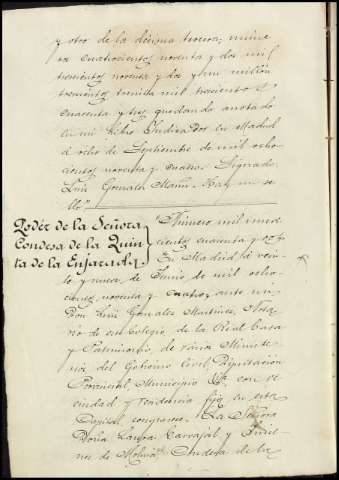 y otro de la décima tercera, núme-
ro cuatrocientos noventa y dos mil
trescientos noventa y dos y un millón
trescientos treinta mil trescientos
cuarenta y tres quedando anotado
en mi libro Indicador en Madrid
á ocho de Septiembre de mil ocho-
cientos noventa y cuatro. Signado
Luis Gonzalez Martz. Hay un se-
llo"
Podér de la Señora
Condesa de la Quin-
ta de la Enjarada.
"Número mil nove-
cientos cuarenta y
En Madrid á vein-
te y nueve de Junio de mil ocho-
cientos noventa y cuatro, ante mi
Don Luis Gonzalez Martinez, Nota-
rio de su Colegio, de la Real Casa
y Patrimonio, de varios Ministe-
rios, del Gobierno Civil, Diputación
Provincial, Municipio &a. con ve-
cindad y residencia fija en esta
Capital, comparece: "La Señora
Doña Laura Carvajal y Jimé-
nez de Molina, Condesa de la